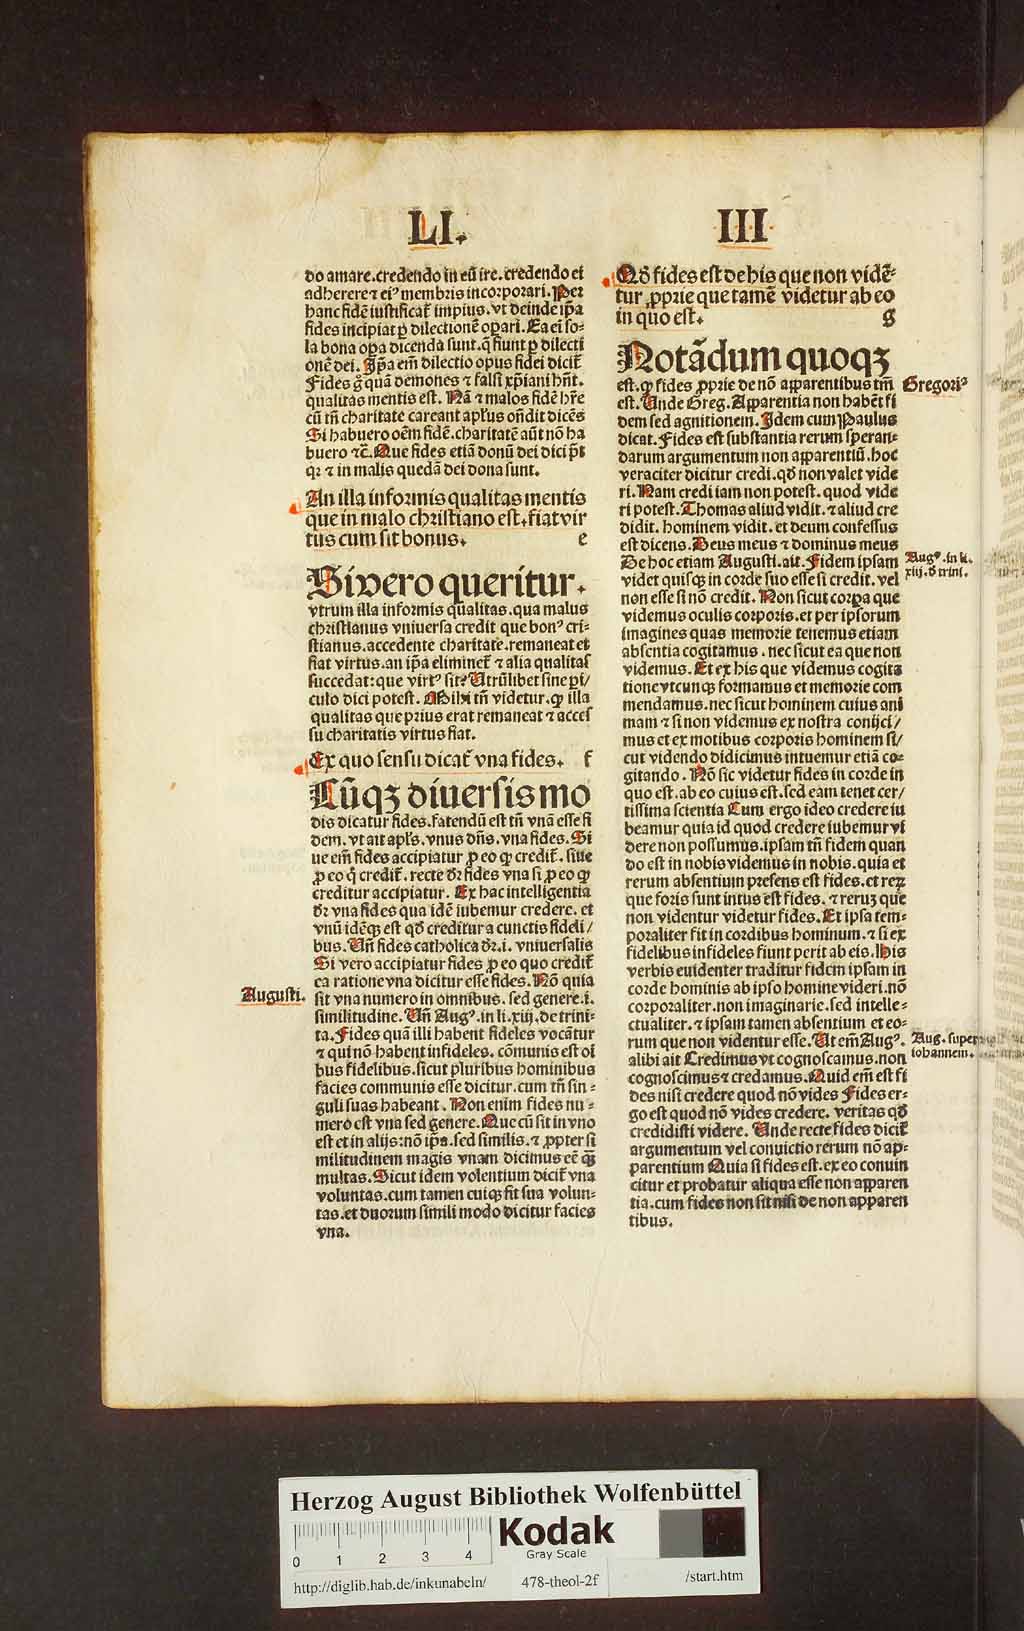 LI.
III
do amare.credendo in eū ire.credendo ei
adherere ⁊ eiꝰ membris incorporari. Per
hanc fidē iustificat᷑ impius. vt deinde ip̄a
fides incipiat ꝑ dilectionē oꝑari. Ea em̄ so-
la bona oꝑa dicenda sunt. q̄ fiunt ꝑ dilecti
onē dei. Ip̄a em̄ dilectio opus fidei dicit᷑
Fides gͦ quā demones ⁊ falsi xp̄iani hn̄t.
qualitas mentis est. Nā ⁊ malos fidē hr̄e
cū tn̄ charitate careant apl̄us on̄dit dicēs
Si habuero oēm fidē.charitatē aūt nō ha
buero ⁊c̄. Que fides etiā donū dei dici pōt
qꝛ ⁊ in malis quedā dei dona sunt.
An illa informis qualitas mentis
que in malo christiano est, fiat vir
tus cum sit bonus. e
Si vero queritur.
vtrum illa informis qualitas.qua malus
christianus vniuersa credit que bonꝰ cri-
stianus.accedente charitate.remaneat et
fiat virtus.an ip̄a eliminet᷑ ⁊ alia qualitas
succedat:que virtꝰ sit? Utrūlibet sine ꝑi/
culo dici potest. Mihi tn̄ videtur. ꝙ illa
qualitas que prius erat remaneat ⁊ acces
su charitatis virtus fiat.
Ex quo sensu dicat᷑ vna fides. f
Cūqꝫ diuersis mo
dis dicatur fides.fatendū est tn̄ vnā esse fi
dem. vt ait apl̄s. vnus dn̄s. vna fides. Si
ue em̄ fides accipiatur ꝓ eo ꝙ credit᷑. siue
ꝓ eo q̇ credit᷑. recte dr̄ fides vna si ꝓ eo ꝙ
creditur accipiatur. Ex hac intelligentia
dr̄ vna fides qua idē iubemur credere. et
vnū idēqꝫ est qd̄ creditur a cunctis fideli/
bus. Un̄ fides catholica dr̄.i. vniuersalis
Si vero accipiatur fides ꝓ eo quo credit᷑
ea ratione vna dicitur esse fides. Nō quia
Augusti.
sit vna numero in omnibus. sed genere.i.
similitudine. Un̄ Augꝰ. in li.xiij. de trini-
ta. Fides quā illi habent fideles vocātur
⁊ qui nō habent infideles. cōmunis est oī
bus fidelibus.sicut pluribus hominibus
facies communis esse dicitur.cum tn̄ sin-
guli suas habeant. Non enim fides nu-
mero est vna sed genere. Que cū sit in vno
est et in alijs:nō ip̄a.sed similis. ⁊ ꝓpter si
militudinem magis vnam dicimus eē ꝙ̄
multas. Sicut idem volentium dicit᷑ vna
voluntas.cum tamen cuiqꝫ sit sua volun-
tas.et duorum simili modo dicitur facies
vna.
Qd̄ fides est de his que non vidē-
tur ꝓprie que tamē videtur ab eo
in quo est. g
Notādum quoqꝫ
est. ꝙ fides ꝓprie de nō apparentibus tm̄
Gregoriꝰ
est. Unde Greg. Apparentia non habēt fi
dem sed agnitionem. Idem cum Paulus
dicat. Fides est substantia rerum speran-
darum argumentum non apparentiū.hoc
veraciter dicitur credi.qd̄ non valet vide
ri. Nam credi iam non potest. quod vide
ri potest. Thomas aliud vidit. ⁊ aliud cre
didit. hominem vidit. et deum confessus
est dicens. Deus meus ⁊ dominus meus
De hoc etiam Augusti. ait. Fidem ipsam
Augꝰ. in li.
xiij. d̄ trini.
videt quisqꝫ in corde suo esse si credit. vel
non esse si nō credit. Non sicut corꝑa que
videmus oculis corporis.et per ipsorum
imagines quas memorie tenemus etiam
absentia cogitamus. nec sicut ea que non
videmus. Et ex his que videmus cogita
tione vtcunqꝫ formamus et memorie com
mendamus. nec sicut hominem cuius ani
mam ⁊ si non videmus ex nostra conijci/
mus et ex motibus corporis hominem si/
cut videndo didicimus intuemur etiā co-
gitando. Nō sic videtur fides in corde in
quo est. ab eo cuius est.sed eam tenet cer/
tissima scientia Cum ergo ideo credere iu
beamur quia id quod credere iubemur vi
dere non possumus.ipsam tn̄ fidem quan
do est in nobis videmus in nobis. quia et
rerum absentium presens est fides. et reꝝ
que foris sunt intus est fides. ⁊ reruꝫ que
non videntur videtur fides. Et ipsa tem-
poraliter fit in cordibus hominum. ⁊ si ex
fidelibus infideles fiunt perit ab eis. His
verbis euidenter traditur fidem ipsam in
corde hominis ab ipso homine videri.nō
corporaliter.non imaginarie.sed intelle-
ctualiter. ⁊ ipsam tamen absentium et eo-
rum que non videntur esse. Ut em̄ Augꝰ.
Aug. super
iohannem.
alibi ait Credimus vt cognoscamus.non
cognoscimus ⁊ credamus. Quid em̄ est fi
des nisi credere quod nō vides Fides er-
go est quod nō vides credere. veritas qd̄
credidisti videre. Unde recte fides dicit᷑
argumentum vel conuictio rerum nō ap-
parentium Quia si fides est. ex eo conuin
citur et probatur aliqua esse non apparen
tia.cum fides non sit nisi de non apparen
tibus.
Herzog August Bibliothek Wolfenbüttel
0 1 2 3 4
Kodak
Gray Scale
http://diglib.hab.de/inkunabeln/
478-theol-2f
/start.htm